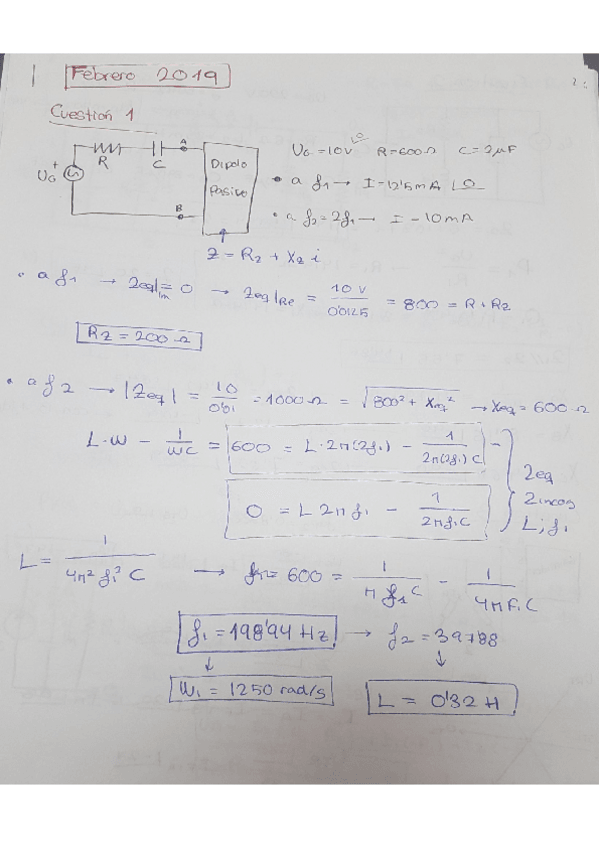 Febrero 2019
Cuestión 1
R C A Dipolo Pasivo
U_G + B
U_G = 10V R = 600Ω C = 2μF
• a f₁ → I = 12'5 mA ∠0
• a f₂ = 2f₁ → I = 10 mA
Z = R_Z + X_Z i
• a f₁ → Zeq|Im = 0 → Zeq|Re = 10 V / 0'0125 = 800 = R + R_Z
R_Z = 200 Ω
• a f2 → |Zeq| = 10 / 0'01 = 1000 Ω = √(800² + Xeq²) → Xeq = 600 Ω
L·W - 1/WC = 600 = L·2π(2f₁) - 1/(2π(2f₁)C)
0 = L 2π f₁ - 1/(2π f₁ C)
2eq
2incog
L; f₁
L = 1/(4π² f₁² C) → 600 = 1/(π f₁ C) - 1/(4π F₁ C)
f₁ = 198'94 Hz → f₂ = 397'88
W₁ = 1250 rad/s
L = 0'32 H